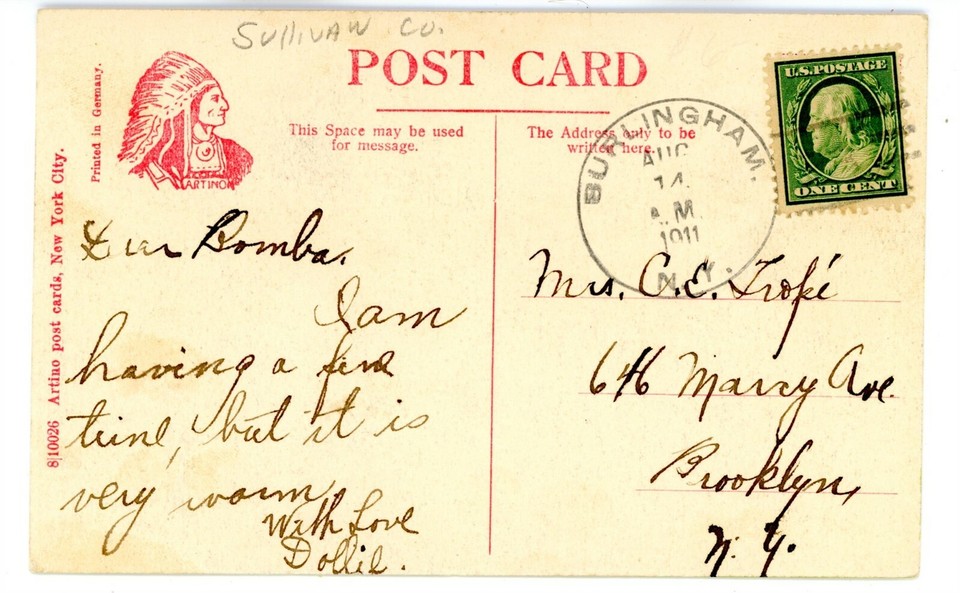 SULLIVAN CO.
POST CARD
Printed in Germany.
ARTINO
8|10026 Artino post cards, New York City.
This Space may be used
for message.
The Address only to be
written here.
U.S. POSTAGE
ONE CENT
BURLINGHAM.
AUG
14
A.M.
1911
N.Y.
Dear Bomba.
I am
having a fine
time, but it is
very warm.
With Love
Dollie.
Mrs. C. E. Tropé
646 Marcy Ave.
Brooklyn,
N. Y.